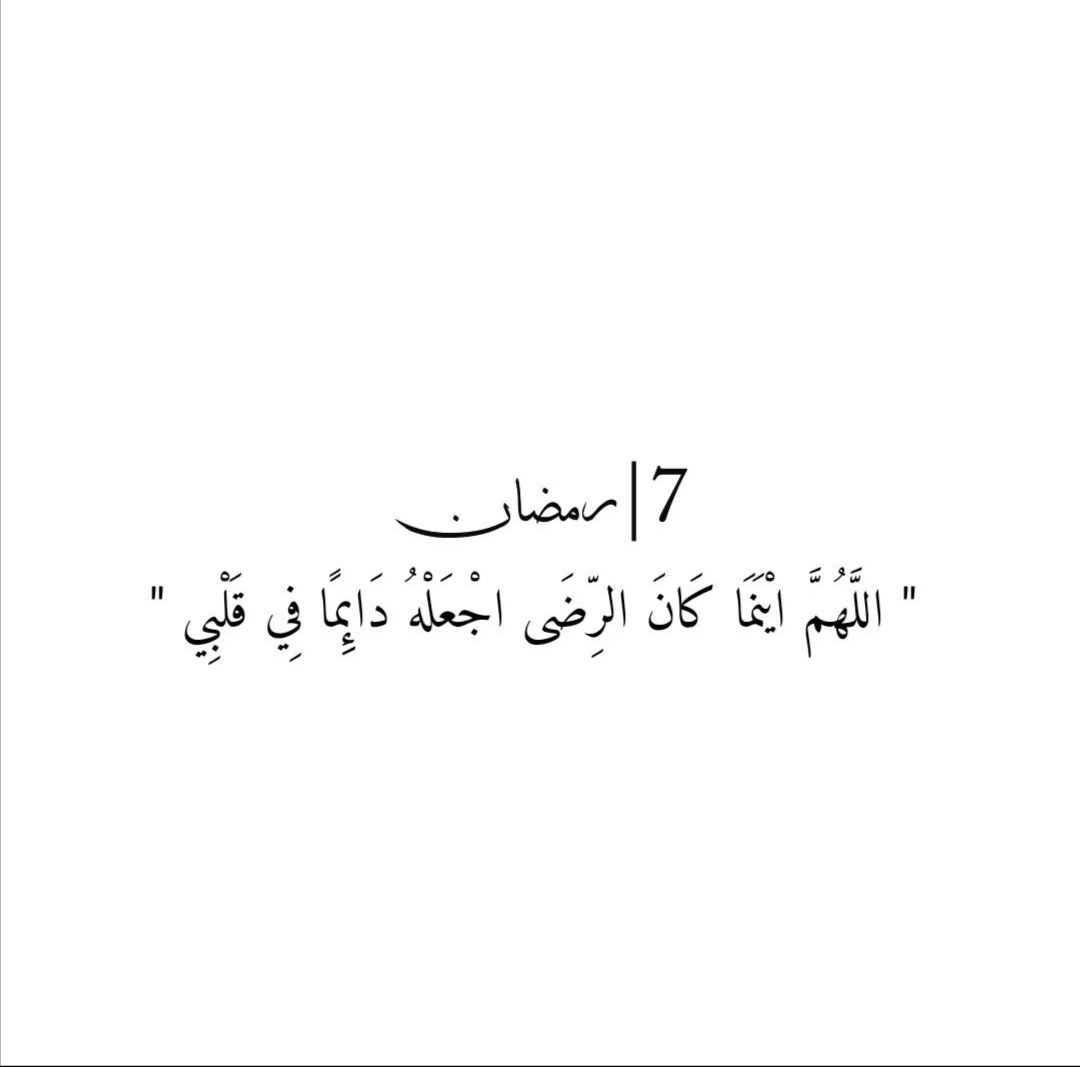 7|رمضان
" اللَّهُمَّ ايْنَمَا كَانَ الرِّضَى اجْعَلْهُ دَائِمًا فِي قَلْبِي "